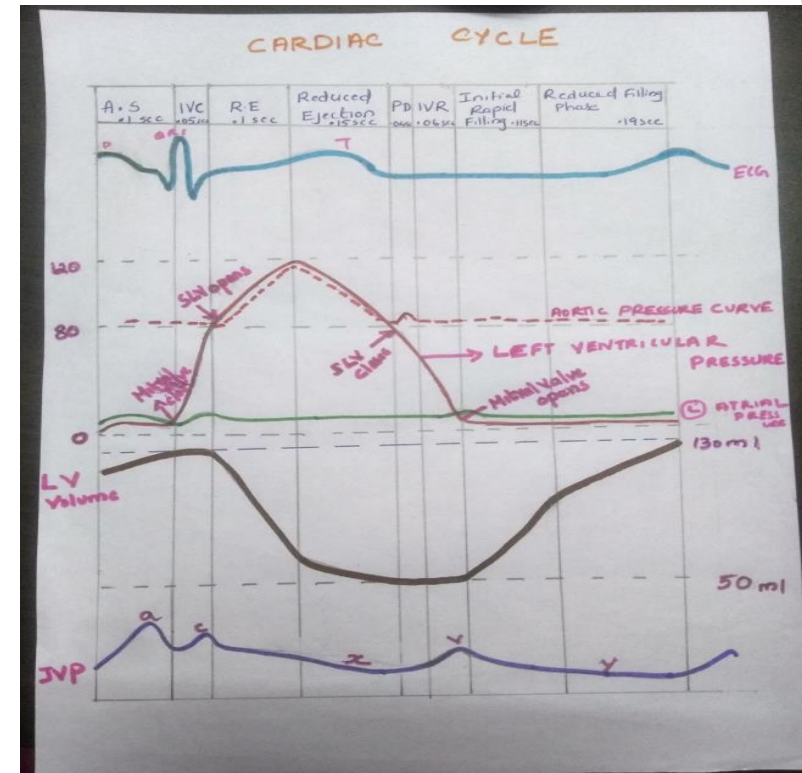 CARDIAC CYCLE
A.S
.1 sec
IVC
.05sec
R.E
.1 sec
Reduced
Ejection
.15sec
PD
IVR
.06sec
Initial
Rapid
Filling .11sec
Reduced Filling
Phase
.19sec
P
QRS
T
ECG
120
SLV opens
AORTIC PRESSURE CURVE
80
SLV
closes
LEFT VENTRICULAR
PRESSURE
Mitral
valve
Mitral valve
opens
L ATRIAL
PRESS
URE
0
130ml
LV
Volume
50ml
a
c
x
v
y
JVP